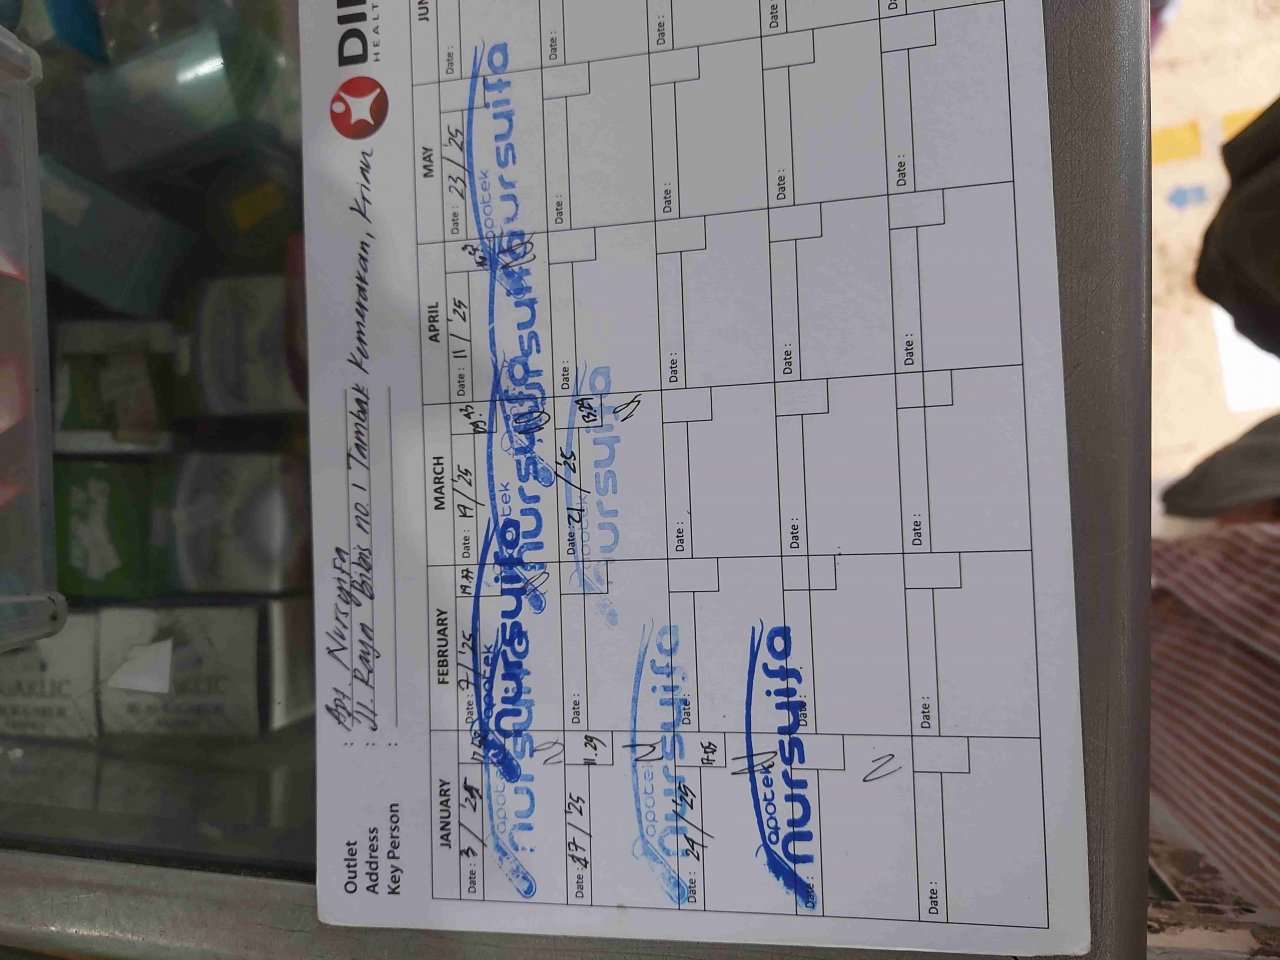 DI
HEALT
Outlet : Apt Nursyifa
Address : Jl. Raya Bibis no. 1 Tambak Kemerakan, Krian
Key Person :
JANUARY FEBRUARY MARCH APRIL MAY JUN
Date : 3 / '25
Date : 7 / '25 19.47
Date : 19 / '25 09.43
Date : 11 / '25
Date : 23 / '25
Date :
apotek nursyifa
apotek nursyifa
apotek nursyifa
apotek nursyifa
apotek nursyifa
Date : 17 / '25 11.29
Date :
Date : 21 / '25 13.29
Date :
Date :
Date :
apotek nursyifa
apotek nursyifa
Date : 24 / '25 17.05
Date :
Date :
Date :
Date :
Date :
apotek nursyifa
Date :
Date :
Date :
Date :
Date :
Date :
Date :
Date :
Date :
Date :
Date :
GARLIC